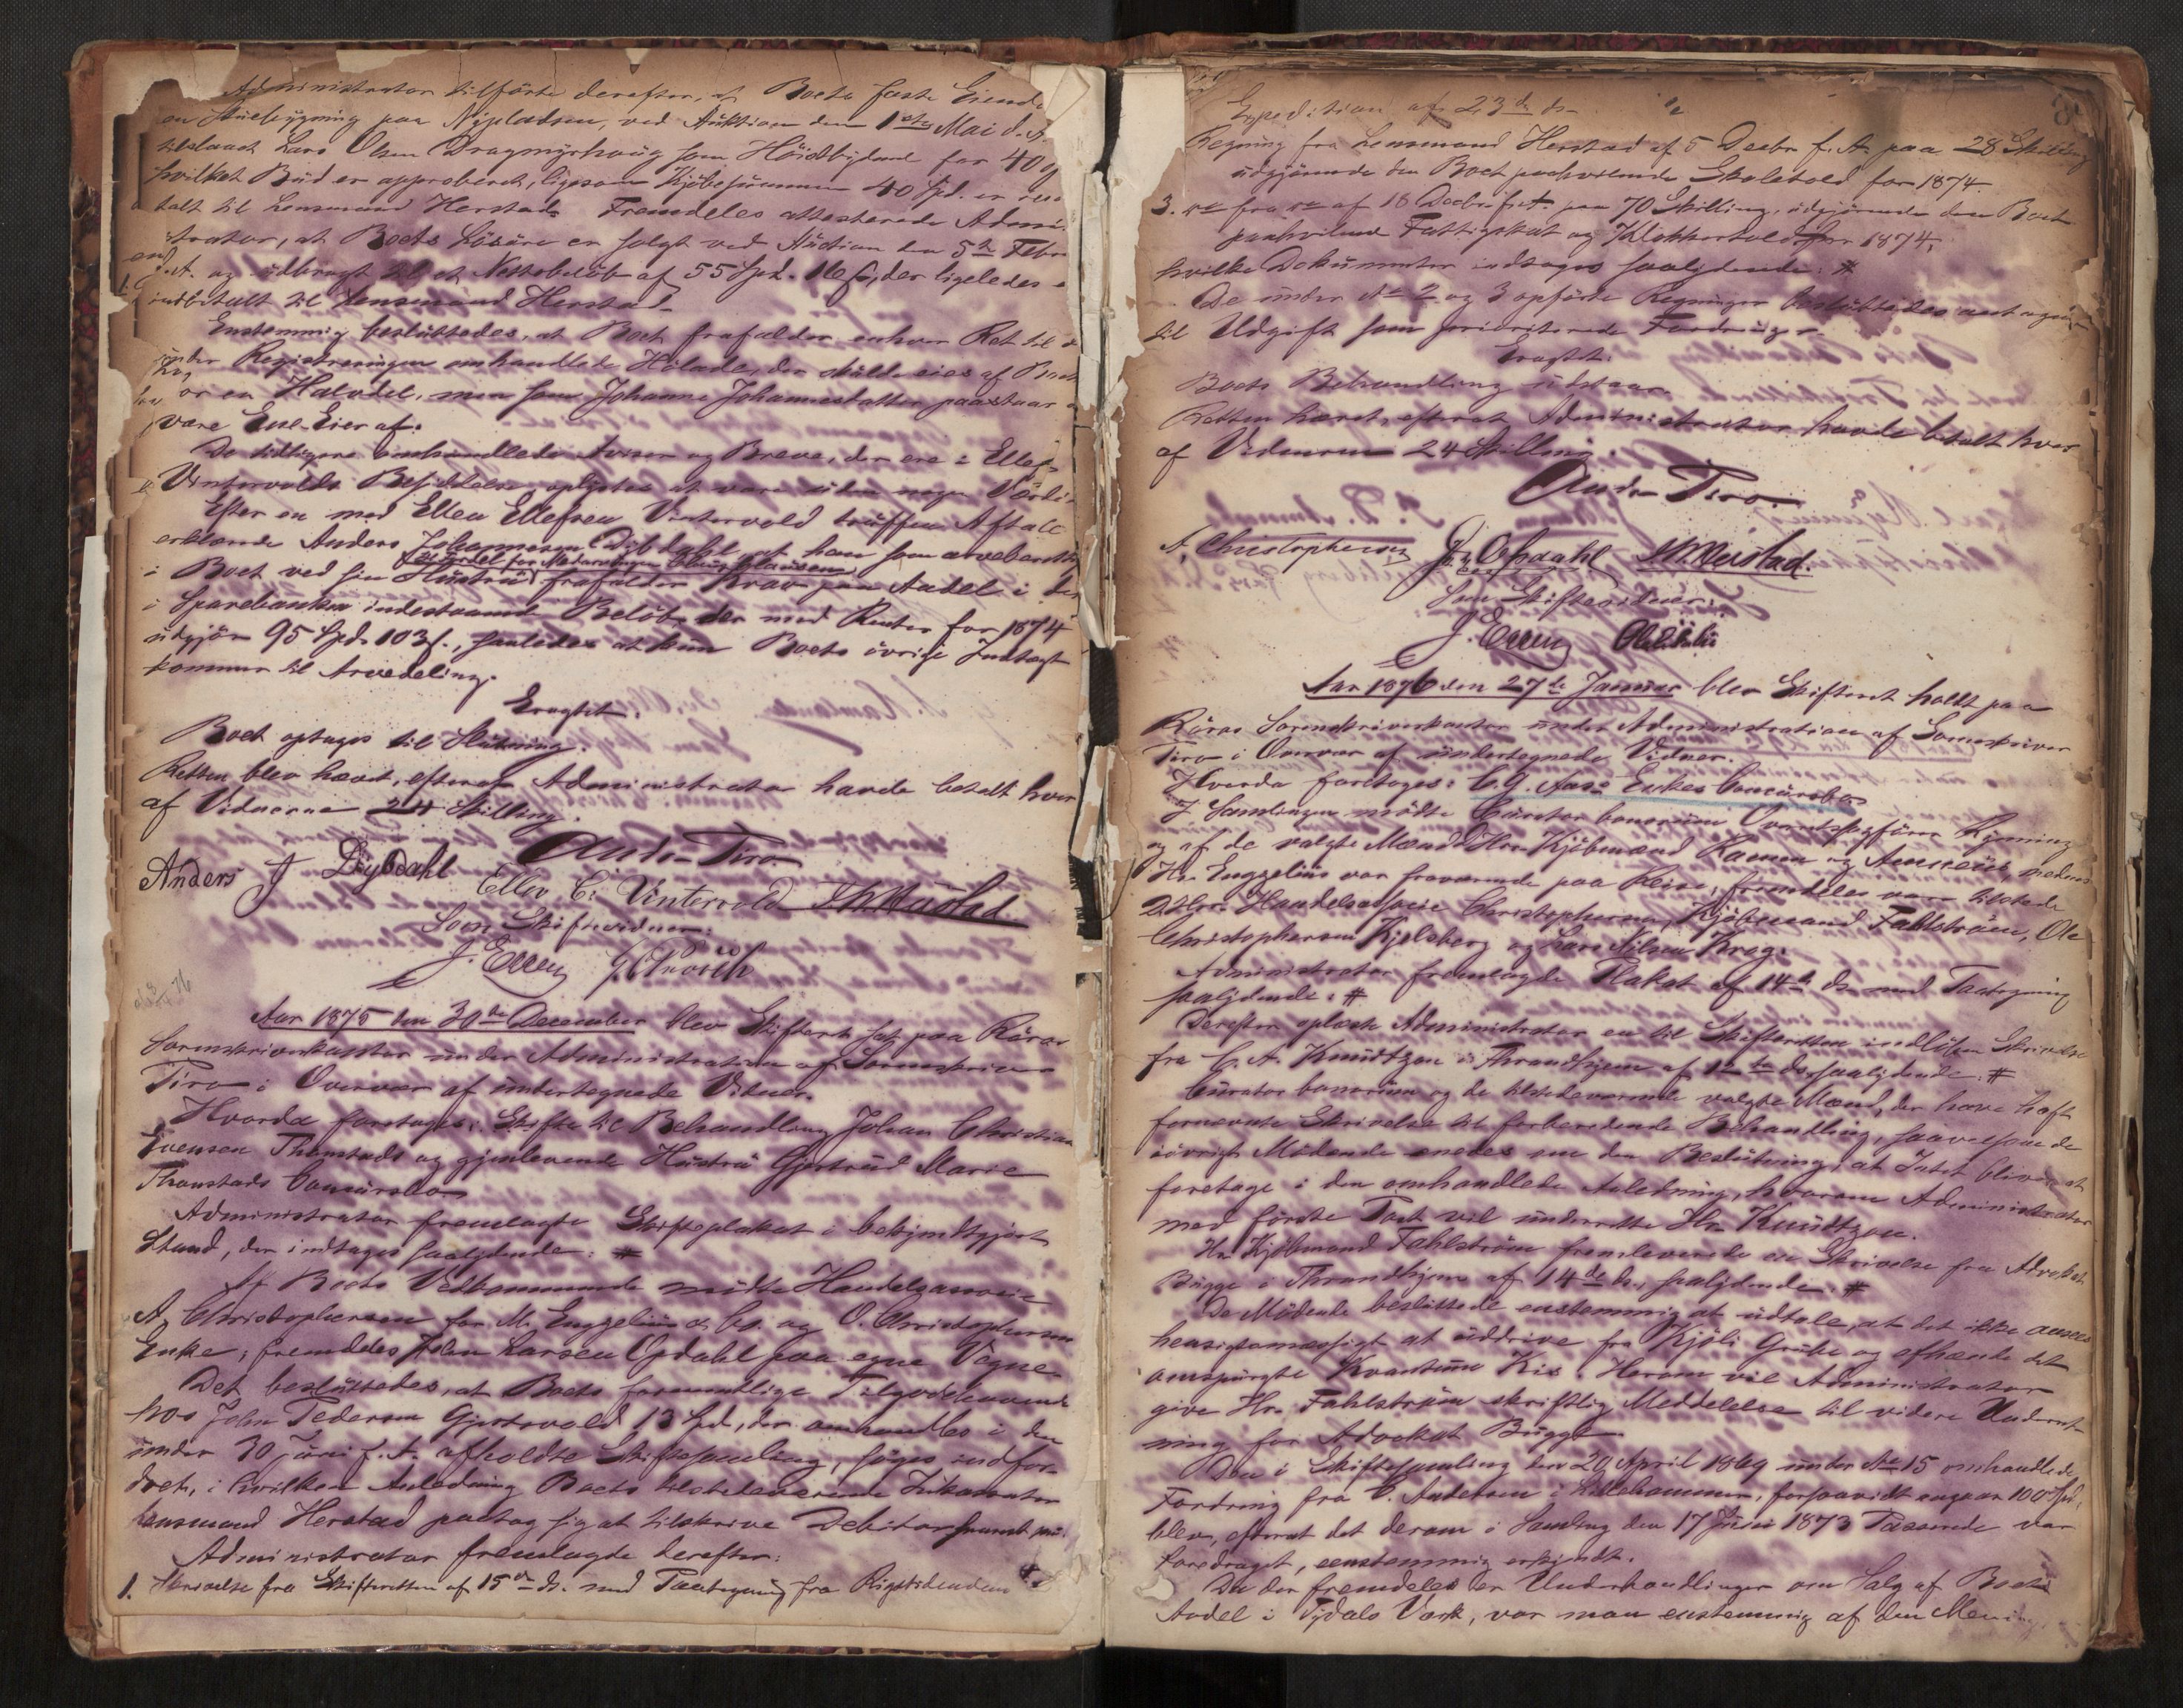 Administrator tilførte derefter, at Boets faste Eiend
en Stuebygning paa Nypladsen, ved Auktion den 1ste Mai d. A.
tilslaaet Lars Olsen Dragmyrhaug som Høistbydende for 40
hvilket Bud er approberet, ligesom Kjøbesummen 40 Spd. er
talt til Lensmand Herstad. Fremdeles attesterede Admini
strator, at Boets Løsøre er solgt ved Auction den 5te Febr
d. A. og udbragt til et Nettobeløb af 55 Spd. 16 s, der ligeledes
indbetalt til Lensmand Herstad.
Enstemmig besluttedes, at Boet frafalder enhver Ret til
under Registreringen omhandlede Hølade, der skulde eies af Boet
for en Halvdel, men som Johanne Johannesdatter paastaar
være Ene-Eier af.
De tidligere omhandlede Aviser og Breve, der ere i Ellef
Vintervolds Besiddelse oplystes at være uden nogen Værdi.
Efter en med Ellev Ellefsen Vintervold truffen Aftale
erklærede Anders Johannesen Døbdahl at han som arveberettig
i Boet ved sin Hustru frafalder Krav paa Andel i det
i Sparebanken indestaaende Beløb, der med Renter for 1874
udgjør 95 Spd. 103 s., saaledes at kun Boets øvrige Indtægt
kommer til Arvedeling.
Eragtet:
Boet optages til Slutning.
Retten blev hævet, efterat Administrator havde betalt hver
af Vidnerne 24 Skilling.
Anders J Døybdahl
Ellev E. Vintervold
Som Skiftevidner:
Aar 1875 den 30te December blev Skifteret sat paa Røros
Sorenskriverkontor under Administration af Sorenskriver
Tiro i Overvær af undertegnede Vidner.
Hvorda foretoges: Skifte til Behandling Johan Christian
Evensen Thomstads og gjenlevende Hustru Gjertrud Marie
Thomstads Concursbo
Administrator fremlagte Skifteplakat i bekjendtgjort
Stand, der indtages saalydende: #
Af Boets Vedkommende mødte Handelsassocie
A. Christophersen for M. Engzelius & Co. og O. Christophersens
Enke; fremdeles John Larsen Opdahl paa egne Vegne.
Det besluttedes, at Boets formentlige Tilgodehavende
hos John Pedersen Gjersvold 13 Spd, der omhandles i den
under 30 Juni f. A. afholdte Skiftesamling, søges indfor-
dret, i hvilken Anledning Boets tilstedeværende Inkassator
Lensmand Herstad paatog sig at tilskrive Debitor
Administrator fremlagde derefter:
1. Skrivelse fra Skifteretten af 15de ds. med Paategning fra Rigstidendens
Expedition af 23de ds.
Regning fra Lensmand Herstad af 5 Decbr f. A. paa 28 Skilling
udgjørende den Boet paahvilende Skoletold for 1874.
3. do fra do af 18 Decbr. f. A. paa 70 Skilling, udgjørende den Boet
paahvilende Fattigskat og Klokkertold for 1874,
hvilke Dokumenter indtages saalydende: #
De under No 2 og 3 opførte Regninger besluttedes antagne
til Udgift som prioriterede Fordringer.
Eragtet:
Boets Behandling udstaar.
Retten hævet, efterat Administrator havde betalt hver
af Vidnerne 24 Skilling.
A. Christophersen J. L. Opdahl
Som Skiftevidner:
Aar 1876 den 27de Januar blev Skifteret holdt paa
Røros Sorenskriverkontor under Administration af Sorenskriver
Tiro i Overvær af undertegnede Vidner.
Hvorda foretoges: C. G. Aas's Enkes Concursbo
I Samlingen mødte Curator bonorum Overretssagfører Hyming
og af de valgte Mænd Hr. Kjøbmand Ramm og Amneus, medens
Hr. Engzelius var fraværende paa Reise; fremdeles vare tilstede
D'Hrr. Handelsassocie Christophersen, Kjøbmand Fahlstrøm, Ole
Christophersen Kjelsberg og Lars Nilsen Krog.
Administrator fremlagde Plakat af 14de ds. med Paategning
saalydende: #
Derefter oplæste Administrator en til Skifteretten indløben Skrivelse
fra C. A. Knudtzon i Throndhjem af ds. saalydende: #
Curator bonorum og de tilstedeværende valgte Mænd, der have havt
fornævnte Skrivelse til forberedende Behandling, saavelsom de
iøvrigt Mødende enedes om den Beslutning, at Intet bliver at
foretage i den omhandlede Anledning, hvorom Administrator
med første Post vil underrette Hr. Knudtzon.
Hr. Kjøbmand Fahlstrøm fremleverede en Skrivelse fra Advokat
Bugge i Throndhjem af 14de ds. saalydende: #
De Mødende besluttede enstemmig at udtale, at det ikke ansees
hensigtsmæssigt at uddrive fra Kjøli Grube og afhænde det
omspurgte Kvantum Kis. Herom vil Administrator
give Hr. Fahlstrøm skriftlig Meddelelse til videre Underret-
ning for Advokat Bugge.
Den i Skiftesamling den 20 April 1869 under No 15 omhandlede
Fordring fra C. Andersen i Lillehammer, forsaavidt angaar 100 Spd,
blev, efterat det derom i Samling den 17 Juni 1873 Passerede var
foredraget, eenstemmig erkjendt.
Da der fremdeles er Underhandlinger om Salg af Boets
Andel i Tydals Værk, var man enstemmig af den Mening